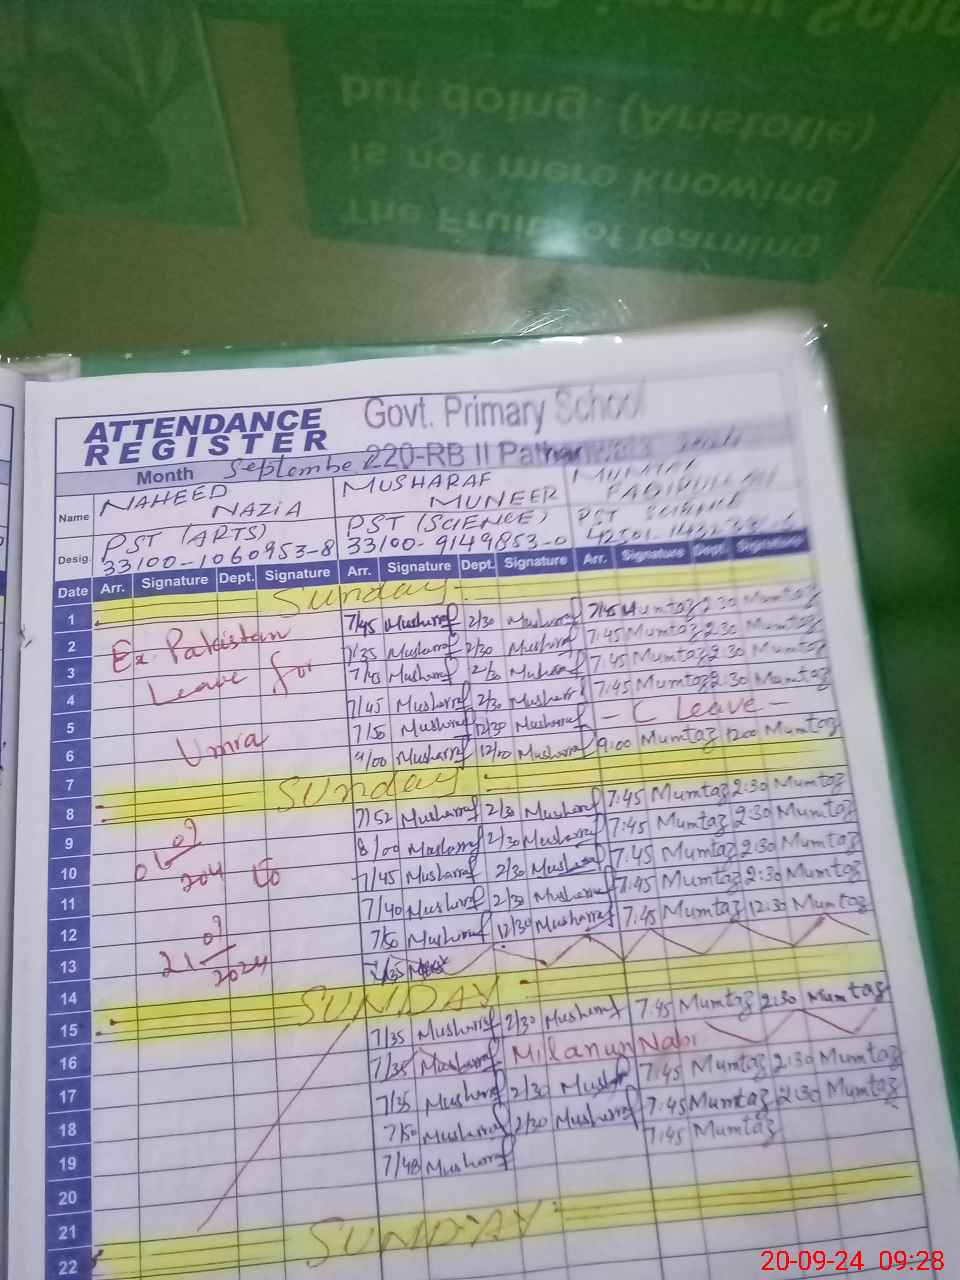 The Fruit of learning
is not mere knowing
but doing. (Aristotle)
ATTENDANCE
REGISTER
Govt. Primary School
220-RB II
Month September
Name NAHEED NAZIA MUSHARAF MUNEER MUMTAZ
Desig. PST (ARTS) PST (SCIENCE) PST SCIENCE
33100-1060953-8 33100-9149853-0
Date Arr. Signature Dept. Signature Arr. Signature Dept. Signature Arr. Signature Dept. Signature
1 Sunday
2 Ex. Pakistan 7/45 Musharraf 2/30 Musharraf 7:45 Mumtaz 2:30 Mumtaz
3 Leave for 7/35 Musharraf 2/30 Musharraf 7:45 Mumtaz 2:30 Mumtaz
4 7/45 Musharraf 2/30 Musharraf 7:45 Mumtaz 2:30 Mumtaz
5 7/45 Musharraf 2/30 Musharraf 7:45 Mumtaz 2:30 Mumtaz
6 Umra 7/50 Musharraf 12/30 Musharraf - C Leave -
7 9/00 Musharraf 12/00 Musharraf 9:00 Mumtaz 12:00 Mumtaz
8 Sunday
9 7/52 Musharraf 2/30 Musharraf 7:45 Mumtaz 2:30 Mumtaz
10 to 8/00 Musharraf 2/30 Musharraf 7:45 Mumtaz 2:30 Mumtaz
11 7/45 Musharraf 2/30 Musharraf 7:45 Mumtaz 2:30 Mumtaz
12 21 09 2024 7/40 Musharraf 2/30 Musharraf 7:45 Mumtaz 2:30 Mumtaz
13 7/50 Musharraf 12/30 Musharraf 7:45 Mumtaz 12:30 Mumtaz
14 7/35
15 SUNDAY
16 7/35 Musharraf 2/30 Musharraf 7:45 Mumtaz 2:30 Mumtaz
17 7/35 Musharraf Milanun Nabi
18 7/35 Musharraf 2/30 Musharraf 7:45 Mumtaz 2:30 Mumtaz
19 7/50 Musharraf 2/30 Musharraf 7:45 Mumtaz 2:30 Mumtaz
20 7/48 Musharraf 7:45 Mumtaz
21
22 SUNDAY
20-09-24 09:28